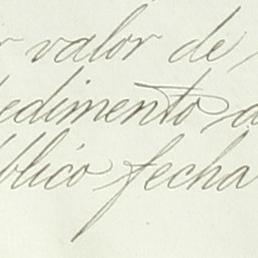 r valor de
edimento d
blico fecha